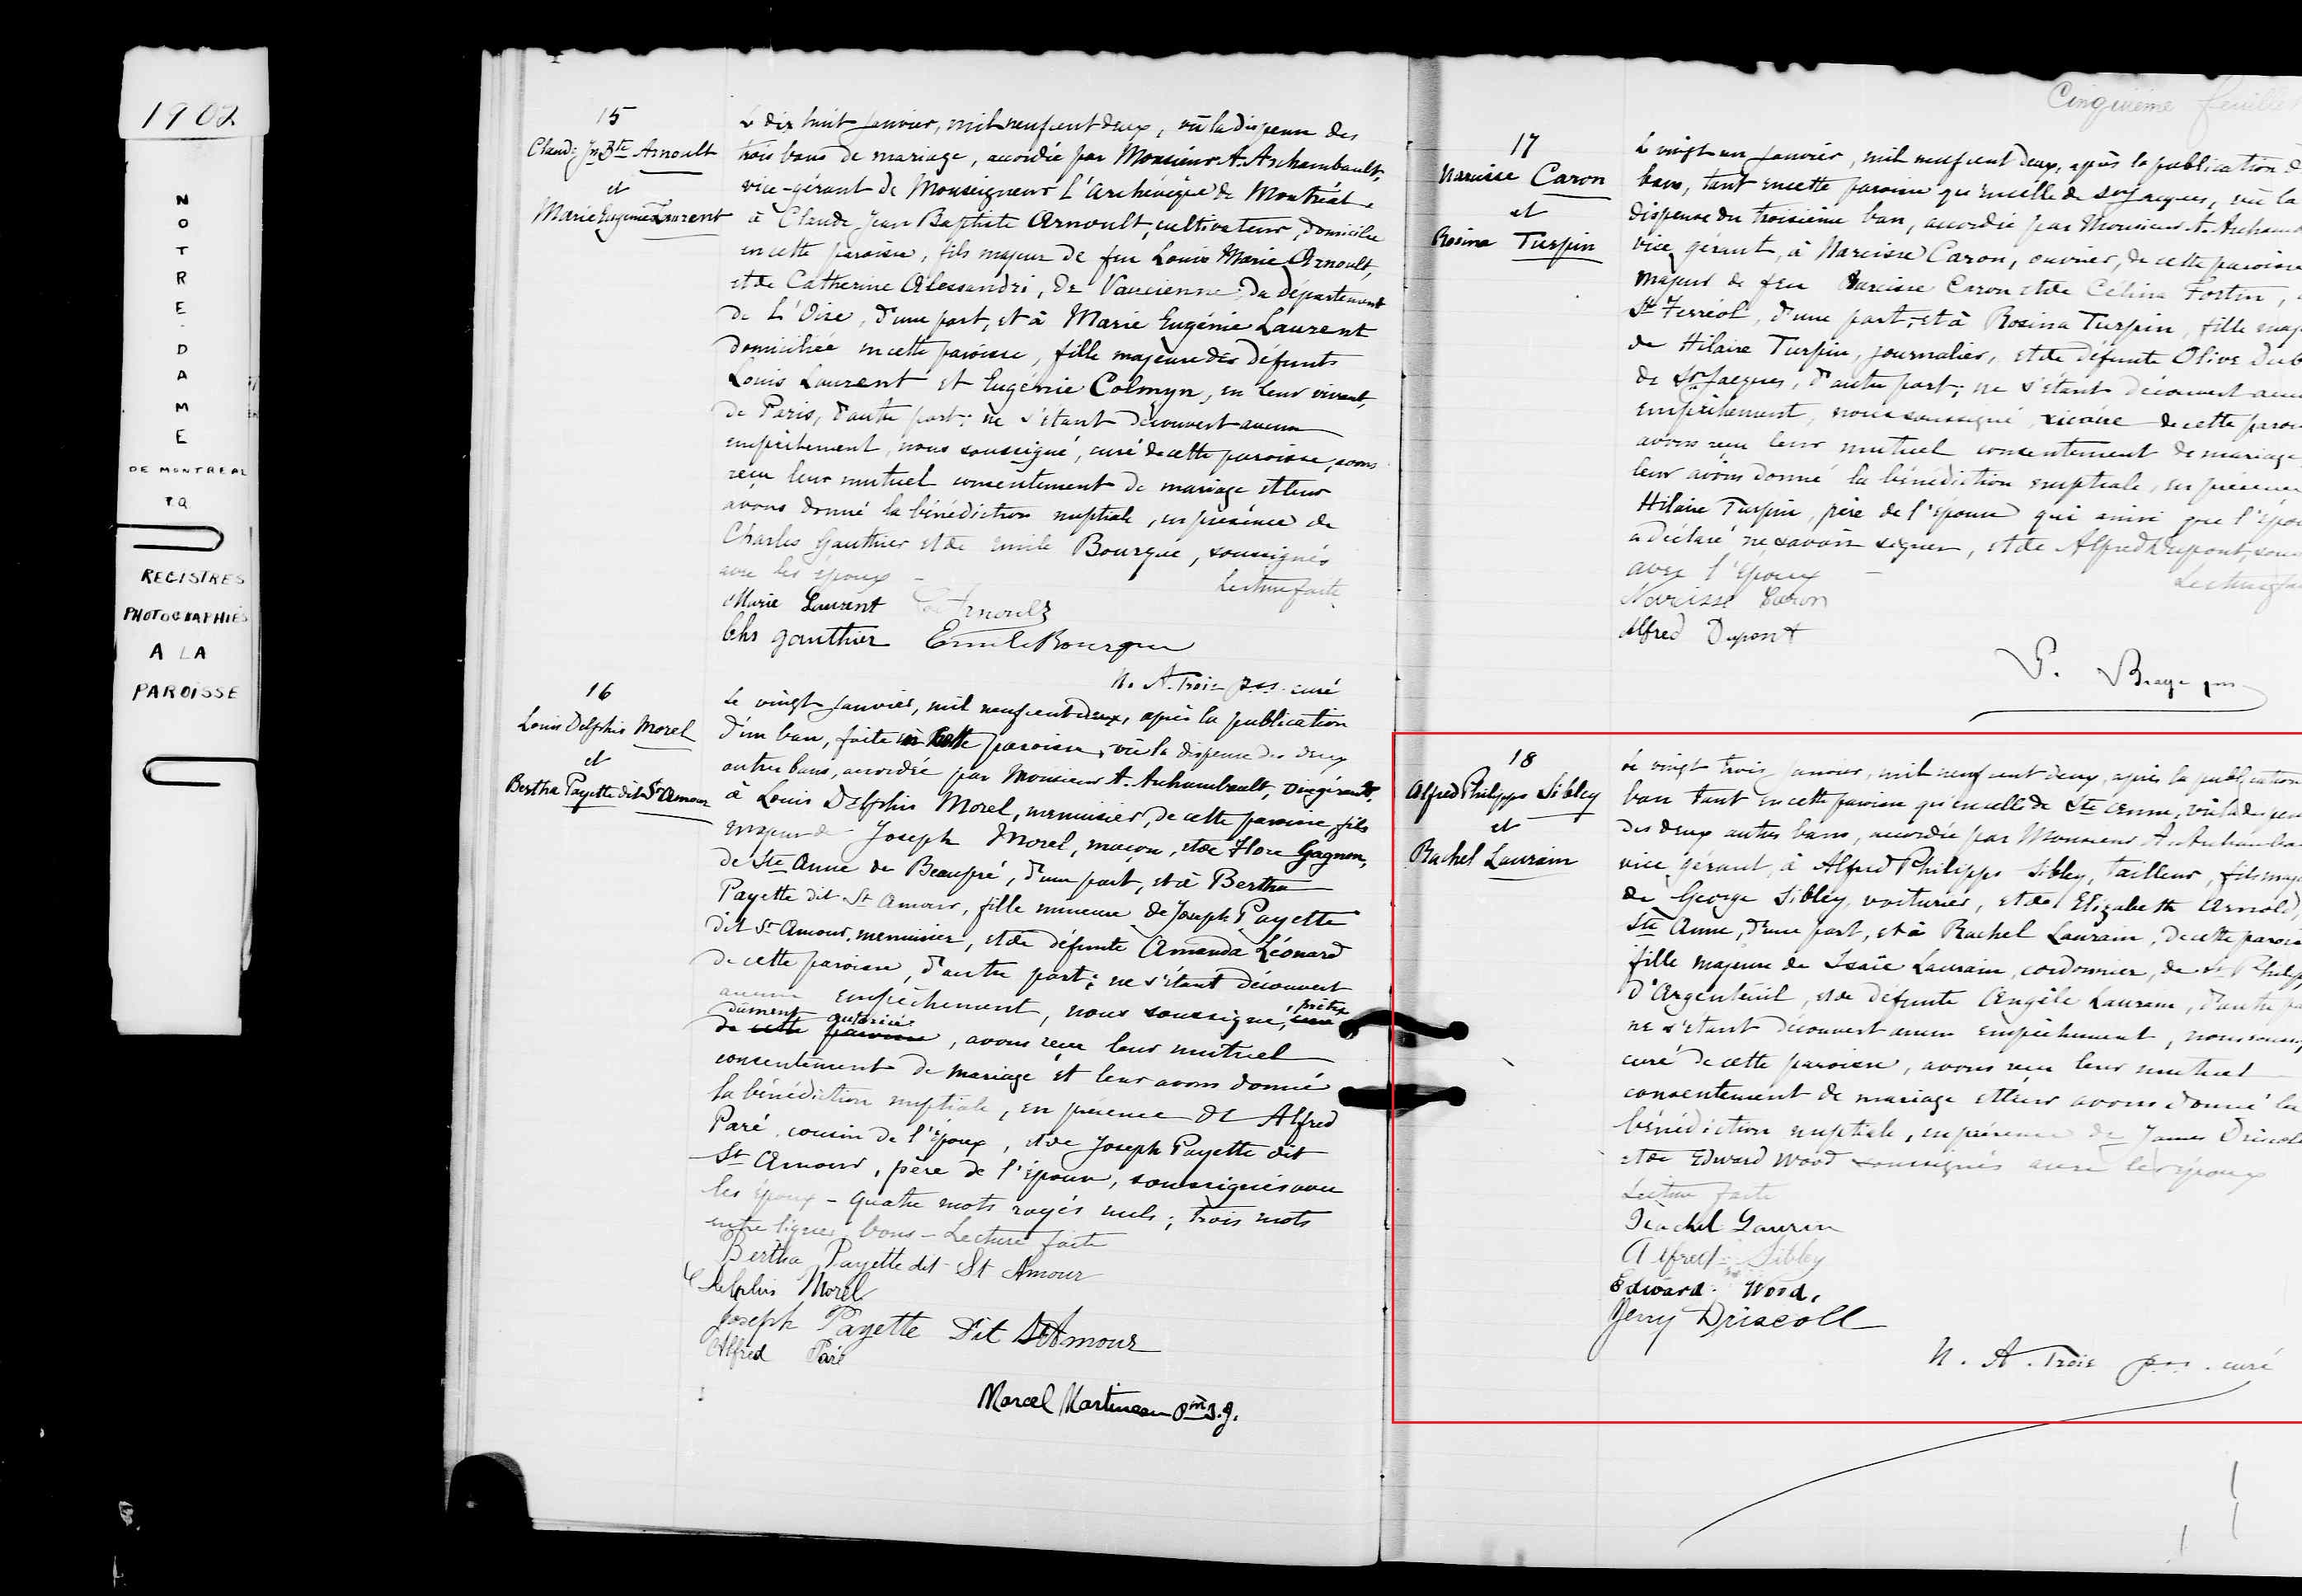 1902
NOTRE-DAME
DE MONTREAL
P.Q
REGISTRES
PHOTOGRAPHIÉS
A LA
PAROISSE
15
Claude Jn Bte Arnoult
et
Marie Eugénie Laurent
Le dix huit janvier, mil neuf cent deux, vû la dispense des
trois bans de mariage, accordée par Monsieur A. Archambault,
vice-gérant de Monseigneur L'Archévêque de Montréal
à Claude Jean Baptiste Arnoult, cultivateur, domicilié
en cette paroisse, fils majeur de feu Louis Marie Arnoult,
et de Catherine Alessandri, de Vaucienne, du département
de L'Oise, d'une part, et à Marie Eugénie Laurent
domiciliée en cette paroisse, fille majeure des défunts
Louis Laurent et Eugénie Colmyn, en leur vivant,
de Paris, d'autre part; ne s'étant découvert aucun
empêchement, nous soussigné, curé de cette paroisse, avons
reçu leur mutuel consentement de mariage et leur
avons donné la bénédiction nuptiale, en présence de
Charles Gauthier et de Emile Bourque, soussignés
avec les époux - Lecture faite
Marie Laurent Arnoult
Chs gauthier Emile Bourque
N. A. Troie curé
16
Louis Delphis Morel
et
Bertha Payette dit St Amour
Le vingt janvier, mil neuf cent deux, après la publication
d'un ban, faite en cette paroisse, vû la dispense des deux
autres bans, accordée par Monsieur A. Archambault, vice gérant,
à Louis Delphis Morel, menuisier, de cette paroisse, fils
majeur de Joseph Morel, maçon, et de Flore Gagnon,
de Ste Anne de Beaupré, d'une part, et à Bertha
Payette dit St Amour, fille mineure de Joseph Payette
dit St Amour, menuisier, et de défunte Amanda Léonard
de cette paroisse, d'autre part; ne s'étant découvert
aucun empêchement, nous soussigné, curé prêtre
dûment autorisé
de cette paroisse, avons reçu leur mutuel
consentement de mariage et leur avons donné
la bénédiction nuptiale, en présence de Alfred
Paré, cousin de l'époux, et de Joseph Payette dit
St Amour, père de l'épouse, soussignés avec
les époux - quatre mots rayés nuls; trois mots
entre lignes bons - Lecture faite
Bertha Payette dit St Amour
Delphis Morel
Joseph Payette Dit St Amour
Alfred Paré
Marcel Martineau p.s.s.
Cinquième feuillet
17
Narcisse Caron
et
Rosina Turpin
Le vingt un janvier, mil neuf cent deux, après la publication d
bans, tant en cette paroisse qu'en celle de St Jacques, vû la
dispense du troisième ban, accordée par Monsieur A. Archamb
vice gérant, à Narcisse Caron, ouvrier, de cette paroisse
majeur de feu Narcisse Caron et de Célina Fortin,
St Ferréol, d'une part, et à Rosina Turpin, fille maj
de Hilaire Turpin, journalier, et de défunte Olive Dub
de St Jacques, d'autre part; ne s'étant découvert aucu
empêchement, nous soussigné, vicaire de cette paroi
avons reçu leur mutuel consentement de mariage
leur avons donné la bénédiction nuptiale, en présence
Hilaire Turpin, père de l'épouse qui ainsi que l'épou
a déclaré ne savoir signer, et de Alfred Dupont, sous
avec l'époux - Lecture fai
Narcisse Caron
Alfred Dupont
18
Alfred Philipps Sibley
et
Rachel Laurain
Le vingt trois janvier, mil neuf cent deux, après la publication
ban tant en cette paroisse qu'en celle de Ste Anne, vû la dispen
des deux autres bans, accordée par Monsieur A. Archamba
vice gérant, à Alfred Philipps Sibley, tailleur, fils maj
de George Sibley, voiturier, et de Elizabeth Arnold,
Ste Anne, d'une part, et à Rachel Laurain, de cette parois
fille majeure de Isaïe Laurain, cordonnier, de St Philipp
d'Argenteuil, et de défunte Angèle Laurain, d'autre pa
ne s'étant découvert aucun empêchement, nous soussig
curé de cette paroisse, avons reçu leur mutuel
consentement de mariage et leur avons donné la
bénédiction nuptiale, en présence de James Driscoll
et de Edward Wood soussignés avec les époux
Lecture faite
Rachel Laurin
Alfred Sibley
Edward Wood.
Jerry Driscoll
N. A. Troie curé